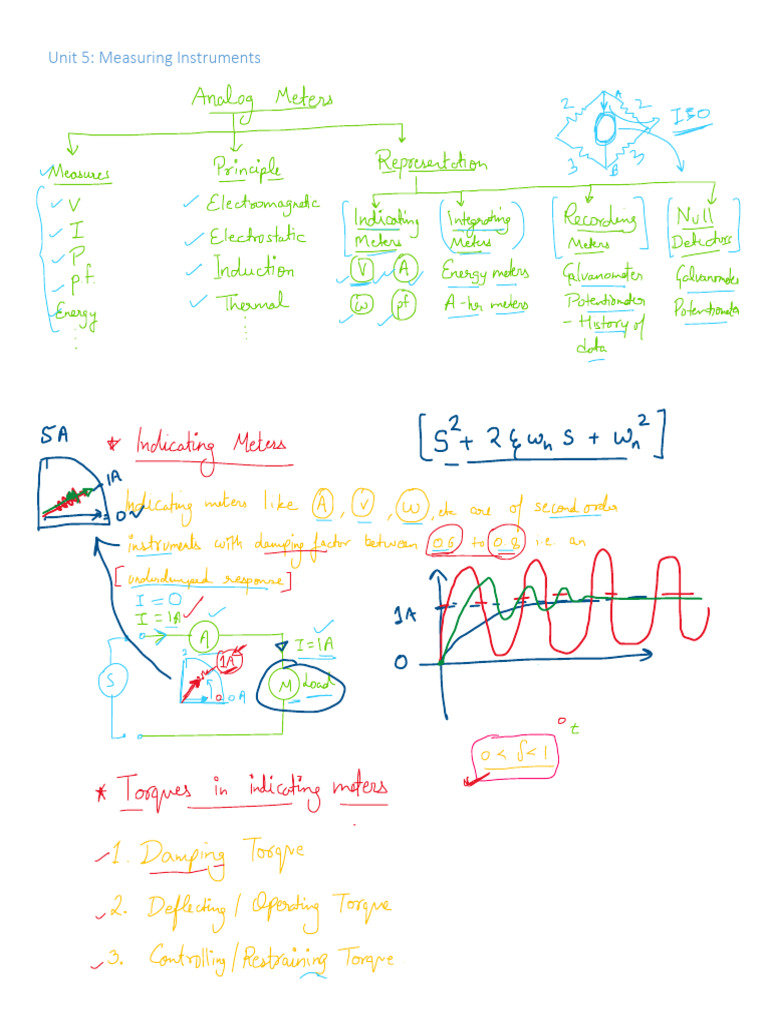 Unit 5: Measuring Instruments
Analog Meters
A
2
2
3
3
B
ISO
Measures
V
I
P
pf
Energy
Principle
Electromagnetic
Electrostatic
Induction
Thermal
Representation
[Indicating Meters]
V A
W pf
(Integrating Meters)
Energy meters
A-hr meters
[Recording Meters]
Galvanometer
Potentiometer
- History of
data
[Null Detectors]
Galvanometer
Potentiometer
5A
1A
0
* Indicating Meters
[S² + 2ξωn S + ωn²]
Indicating meters like A, V, W, etc are of second order
instruments with damping factor between 0.6 to 0.8 i.e. an
[underdamped response]
I = 0
I = 1A
A
I = 1A
S
2
1A
0 0A
M Load
1A
0
t
0 < δ < 1
* Torques in indicating meters
1. Damping Torque
2. Deflecting / Operating Torque
3. Controlling / Restraining Torque